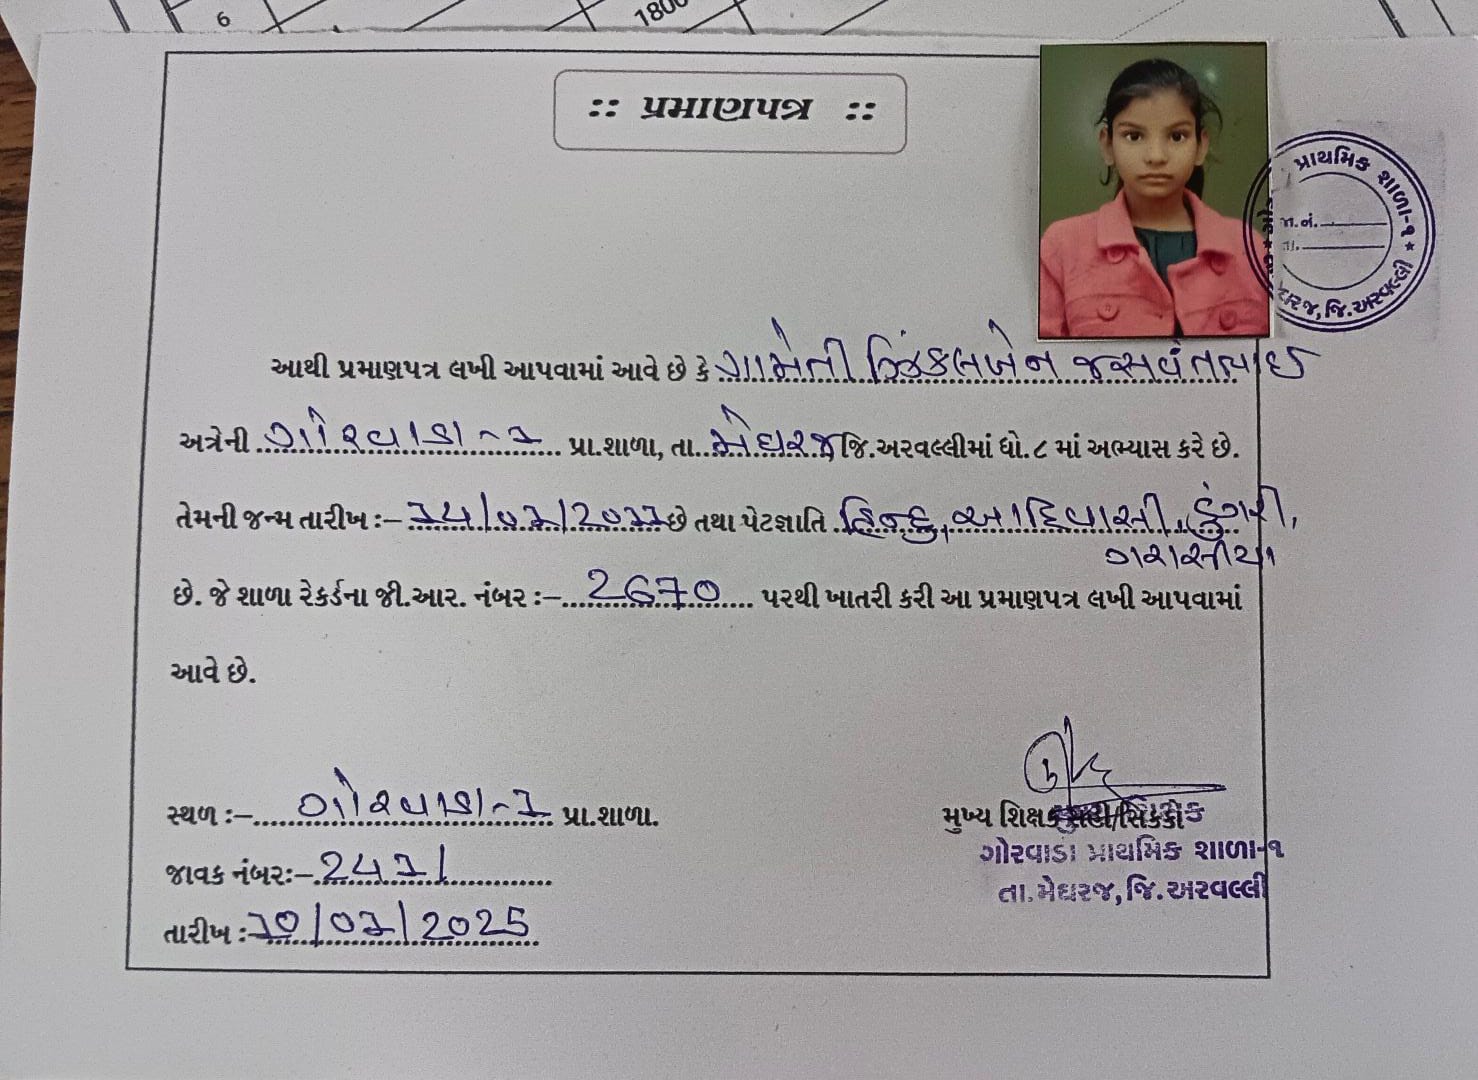 6
1800
:: પ્રમાણપત્ર ::
પ્રાથમિક શાળા-૧
જા.નં.
તા.
મેઘરજ, જિ.અરવલ્લી
આથી પ્રમાણપત્ર લખી આપવામાં આવે છે કે ગામેતી ઝિંકલબેન જસવંતભાઈ
અત્રેની ગોરવાડા-૧ પ્રા.શાળા, તા. મેઘરજ જિ.અરવલ્લીમાં ધો.૮ માં અભ્યાસ કરે છે.
તેમની જન્મ તારીખ :- ૧૫/૦૧/૨૦૧૧ છે તથા પેટાજ્ઞાતિ હિન્દુ, આદિવાસી, ડુંગરી,
ગરાસીયા
છે. જે શાળા રેકર્ડના જી.આર. નંબર :- 2670 પરથી ખાતરી કરી આ પ્રમાણપત્ર લખી આપવામાં
આવે છે.
સ્થળ :- ગોરવાડા-૧ પ્રા.શાળા.
મુખ્ય શિક્ષક સહી/સિક્કો
જાવક નંબર:- ૨૫૧/
ગોરવાડા પ્રાથમિક શાળા-૧
તા.મેઘરજ, જિ.અરવલ્લી
તારીખ :- 10/01/2025